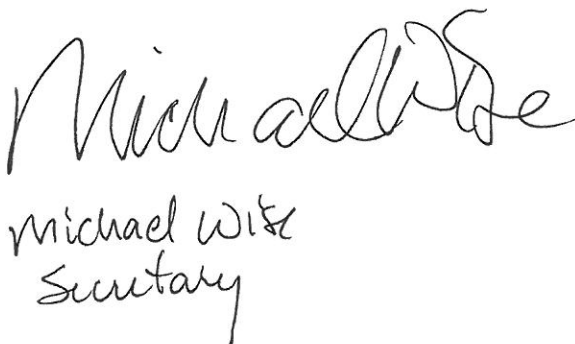 Michael Wise
Michael Wise
Secretary